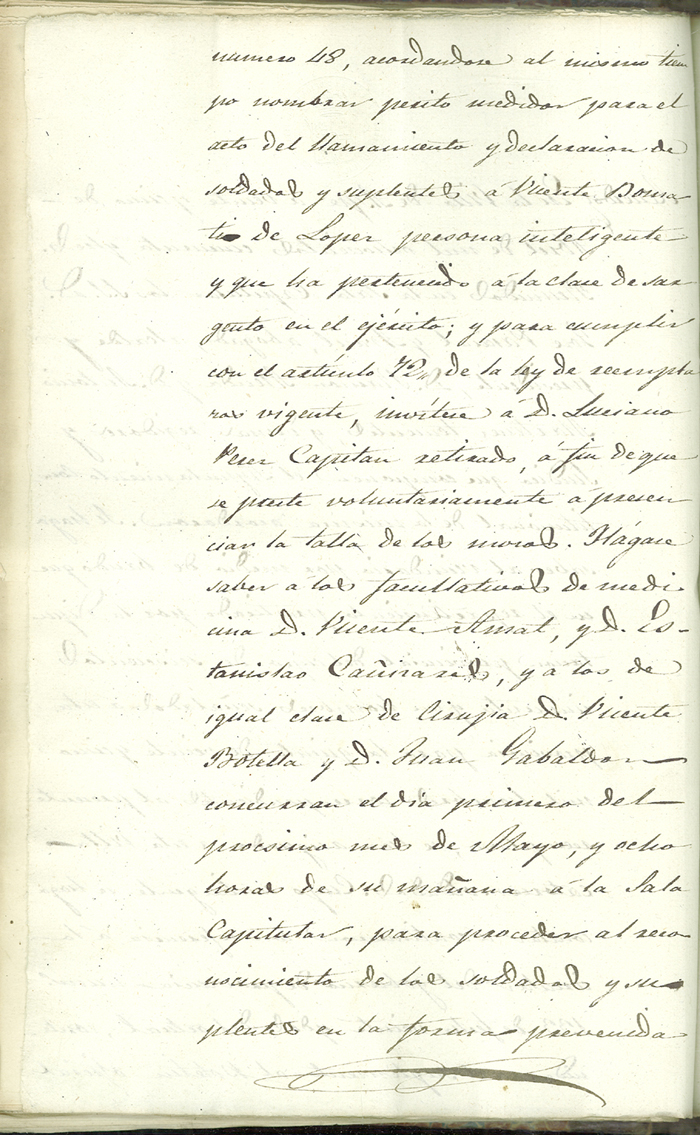 numero 48, acordandose al mismo tiem
po nombrar perito medidor para el
acto del llamamiento y declaracion de
soldados y suplentes á Vicente Boma
ti de Loper persona inteligente
y que ha pertenecido á la clase de sar
gento en el ejército; y para cumplir
con el artículo 72, de la ley de reempla
ros vigente, invítese á D. Luciano
Perer Capitan retirado, á fin de que
se preste voluntariamente a presen
ciar la talla de los moros. Hágase
saber a los facultativos de medi
cina D. Vicente Amat, y D. Es-
tanislao Cañirares, y a los de
igual clase de Cirujia D. Vicente
Botella y D. Juan Gabaldon
concurran el dia primero del
procsimo mes de Mayo, y ocho
horas de su mañana á la Sala
Capitular, para proceder al reco
nocimiento de los soldados y su
plentes en la forma prevenida